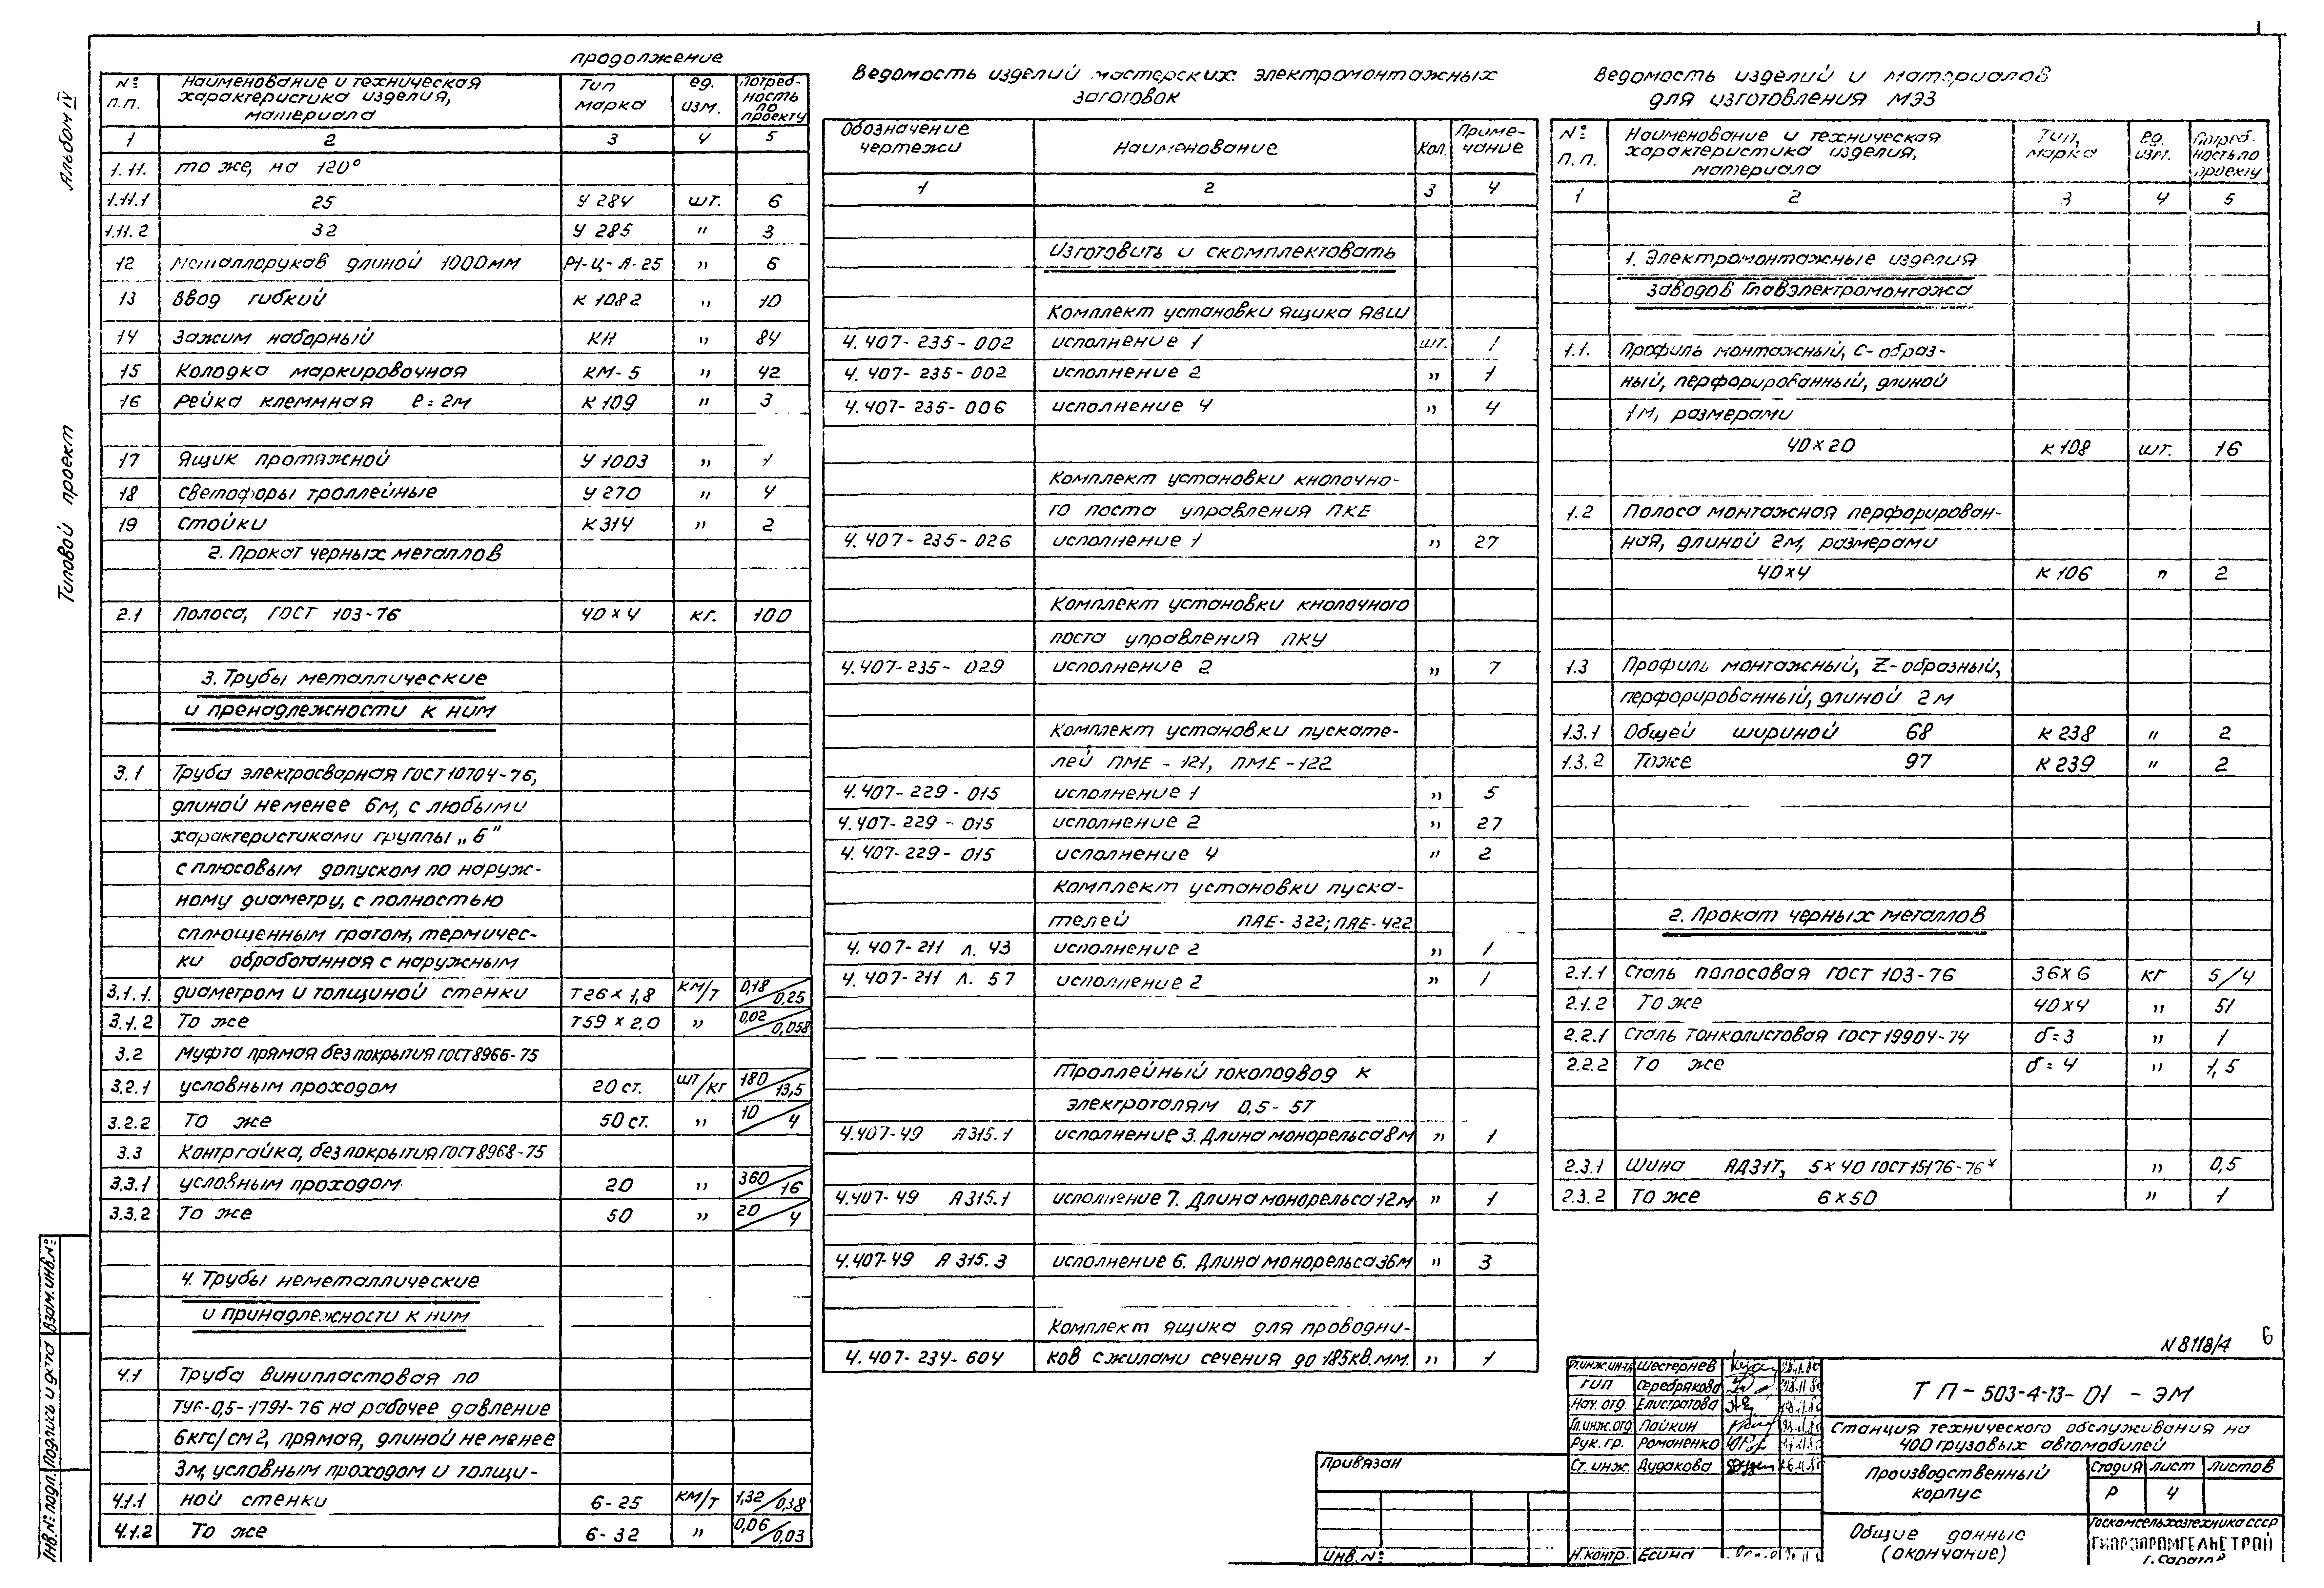 Альбом IV
Типовой проект
продолжение
№ п.п. Наименование и техническая характеристика изделия, материала Тип марка ед. изм. Потреб-ность по проекту
1 2 3 4 5
1.11. то же, на 120°
1.11.1 25 У 284 шт. 6
1.11.2 32 У 285 " 3
12 Металлорукав длиной 1000мм Р1-Ц-А-25 " 6
13 Ввод гибкий К 1082 " 10
14 Зажим наборный КН " 84
15 Колодка маркировочная КМ-5 " 42
16 Рейка клеммная ℓ=2м К 109 " 3
17 Ящик протяжной У 1003 " 1
18 Светофоры троллейные У 270 " 4
19 Стойки К 314 " 2
2. Прокат черных металлов
2.1 Полоса, ГОСТ 103-76 40×4 кг. 100
3. Трубы металлические
и пренадлежности к ним
3.1 Труба электросварная ГОСТ 10704-76,
длиной не менее 6м, с любыми
характеристиками группы „Б"
с плюсовым допуском по наруж-
ному диаметру, с полностью
сплющенным гратом, термичес-
ки обработанная с наружным
3.1.1. диаметром и толщиной стенки Т26×1,8 км/т 0,18/0,25
3.1.2 То же Т59×2,0 " 0,02/0,058
3.2 Муфта прямая без покрытия ГОСТ 8966-75
3.2.1 условным проходом 20 ст. шт/кг 180/13,5
3.2.2 То же 50 ст. " 10/4
3.3 Контргайка, без покрытия ГОСТ 8968-75
3.3.1 условным проходом 20 " 360/16
3.3.2 То же 50 " 20/4
4. Трубы неметаллические
и принадлежности к ним
4.1 Труба винипластовая по
ТУ6-0,5-1791-76 на рабочее давление
6кгс/см2, прямая, длиной не менее
3м, условным проходом и толщи-
4.1.1 ной стенки 6-25 км/т 1,32/0,38
4.1.2 То же 6-32 " 0,06/0,03
Ведомость изделий мастерских электромонтажных
заготовок
Обозначение чертежи Наименование Кол. Приме-чание
1 2 3 4
Изготовить и скомплектовать
Комплект установки ящика ЯВШ
4.407-235-002 исполнение 1 шт. 1
4.407-235-002 исполнение 2 " 1
4.407-235-006 исполнение 4 " 4
Комплект установки кнопочно-
го поста управления ПКЕ
4.407-235-026 исполнение 1 " 27
Комплект установки кнопочного
поста управления ПКУ
4.407-235-029 исполнение 2 " 7
Комплект установки пускате-
лей ПМЕ-121, ПМЕ-122
4.407-229-015 исполнение 1 " 5
4.407-229-015 исполнение 2 " 27
4.407-229-015 исполнение 4 " 2
Комплект установки пуска-
телей ПАЕ-322; ПАЕ-422
4.407-211 л. 43 исполнение 2 " 1
4.407-211 л. 57 исполнение 2 " 1
Троллейный токоподвод к
электроталям 0,5-5т
4.407-49 А315.1 исполнение 3. Длина монорельса 8м " 1
4.407-49 А315.1 исполнение 7. Длина монорельса 12м " 1
4.407-49 А315.3 исполнение 6. Длина монорельса 36м " 3
Комплект ящика для проводни-
4.407-234-604 ков с жилами сечения до 185кв.мм. " 1
Ведомость изделий и материалов
для изготовления МЭЗ
№ п.п. Наименование и техническая характеристика изделия, материала Тип, марка Ед. изм. Потреб-ность по проекту
1 2 3 4 5
1. Электромонтажные изделия
заводов Главэлектромонтажа
1.1. Профиль монтажный, С-образ-
ный, перфорированный, длиной
1м, размерами
40×20 К 108 шт. 16
1.2 Полоса монтажная перфорирован-
ная, длиной 2м, размерами
40×4 К 106 " 2
1.3 Профиль монтажный, Z-образный,
перфорированный, длиной 2м
1.3.1 Общей шириной 68 К 238 " 2
1.3.2 Тоже 97 К 239 " 2
2. Прокат черных металлов
2.1.1 Сталь полосовая ГОСТ 103-76 36×6 кг 5/4
2.1.2 То же 40×4 " 51
2.2.1 Сталь тонколистовая ГОСТ 19904-74 δ=3 " 1
2.2.2 То же δ=4 " 1,5
2.3.1 Шина АД31Т, 5×40 ГОСТ 15176-76* " 0,5
2.3.2 То же 6×50 " 1
N 8118/4 6
Гл.инж.ин-та Шестернев
ГИП Серебрякова
Нач. отд. Елистратова
Гл.инж.отд. Лайкин
Рук. гр. Романенко
Ст. инж. Дудакова
Н.контр. Есина
ТП-503-4-13-01-ЭМ
Станция технического обслуживания на
400 грузовых автомобилей
Производственный
корпус
Стадия Лист Листов
Р 4
Общие данные
(окончание)
Госкомсельхозтехника СССР
ГИПРОПРОМСЕЛЬСТРОЙ
г. Саратов
Привязан
Инв. №
Инв.№ подл. Подпись и дата Взам.инв.№